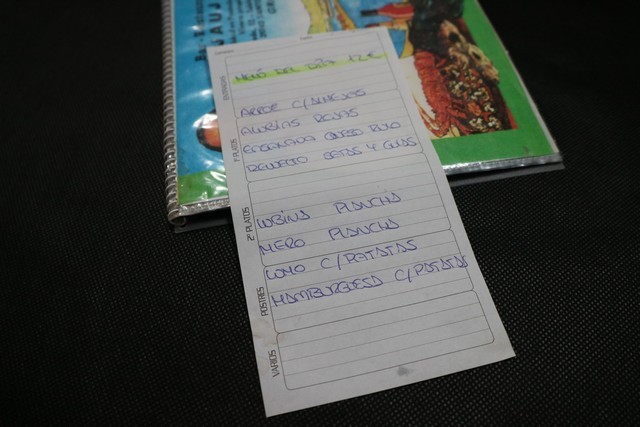 MENÚ DEL DÍA 12€
ARROZ C/ALMEJAS
ALUBIAS ROJAS
1º PLATOS
ENSALADA QUESO RULO
REVUELTO SETAS Y GULAS
2º PLATOS
LUBINA PLANCHA
MERO PLANCHA
LOMO C/PATATAS
POSTRES
HAMBURGUESA C/PATATAS
VARIOS